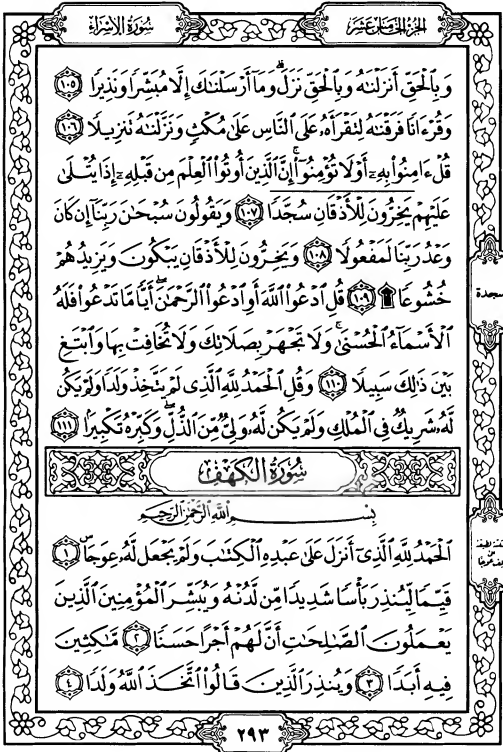 سُورَةُ الْإِسْرَاءِ
الجُزءُ الخَامِسَ عَشَرَ
وَبِالْحَقِّ أَنزَلْنَٰهُ وَبِالْحَقِّ نَزَلَ ۗ وَمَآ أَرْسَلْنَٰكَ إِلَّا مُبَشِّرًا وَنَذِيرًا ١٠٥
وَقُرْءَانًا فَرَقْنَٰهُ لِتَقْرَأَهُۥ عَلَى النَّاسِ عَلَىٰ مُكْثٍ وَنَزَّلْنَٰهُ تَنزِيلًا ١٠٦
قُلْ ءَامِنُوا۟ بِهِۦٓ أَوْ لَا تُؤْمِنُوٓا۟ ۚ إِنَّ الَّذِينَ أُوتُوا۟ الْعِلْمَ مِن قَبْلِهِۦٓ إِذَا يُتْلَىٰ
عَلَيْهِمْ يَخِرُّونَ لِلْأَذْقَانِ سُجَّدًا ١٠٧ وَيَقُولُونَ سُبْحَٰنَ رَبِّنَآ إِن كَانَ
وَعْدُ رَبِّنَا لَمَفْعُولًا ١٠٨ وَيَخِرُّونَ لِلْأَذْقَانِ يَبْكُونَ وَيَزِيدُهُمْ
خُشُوعًا ۩ ١٠٩ قُلِ ادْعُوا۟ اللَّهَ أَوِ ادْعُوا۟ الرَّحْمَٰنَ ۖ أَيًّا مَّا تَدْعُوا۟ فَلَهُ
الْأَسْمَآءُ الْحُسْنَىٰ ۚ وَلَا تَجْهَرْ بِصَلَاتِكَ وَلَا تُخَافِتْ بِهَا وَابْتَغِ
بَيْنَ ذَٰلِكَ سَبِيلًا ١١٠ وَقُلِ الْحَمْدُ لِلَّهِ الَّذِى لَمْ يَتَّخِذْ وَلَدًا وَلَمْ يَكُن
لَّهُۥ شَرِيكٌ فِى الْمُلْكِ وَلَمْ يَكُن لَّهُۥ وَلِىٌّ مِّنَ الذُّلِّ ۖ وَكَبِّرْهُ تَكْبِيرًا ١١١
سُورَةُ الْكَهْفِ
بِسْمِ اللَّهِ الرَّحْمَٰنِ الرَّحِيمِ
الْحَمْدُ لِلَّهِ الَّذِىٓ أَنزَلَ عَلَىٰ عَبْدِهِ الْكِتَٰبَ وَلَمْ يَجْعَل لَّهُۥ عِوَجًا ۜ ١
قَيِّمًا لِّيُنذِرَ بَأْسًا شَدِيدًا مِّن لَّدُنْهُ وَيُبَشِّرَ الْمُؤْمِنِينَ الَّذِينَ
يَعْمَلُونَ الصَّٰلِحَٰتِ أَنَّ لَهُمْ أَجْرًا حَسَنًا ٢ مَّٰكِثِينَ
فِيهِ أَبَدًا ٣ وَيُنذِرَ الَّذِينَ قَالُوا۟ اتَّخَذَ اللَّهُ وَلَدًا ٤
٢٩٣
سجدة